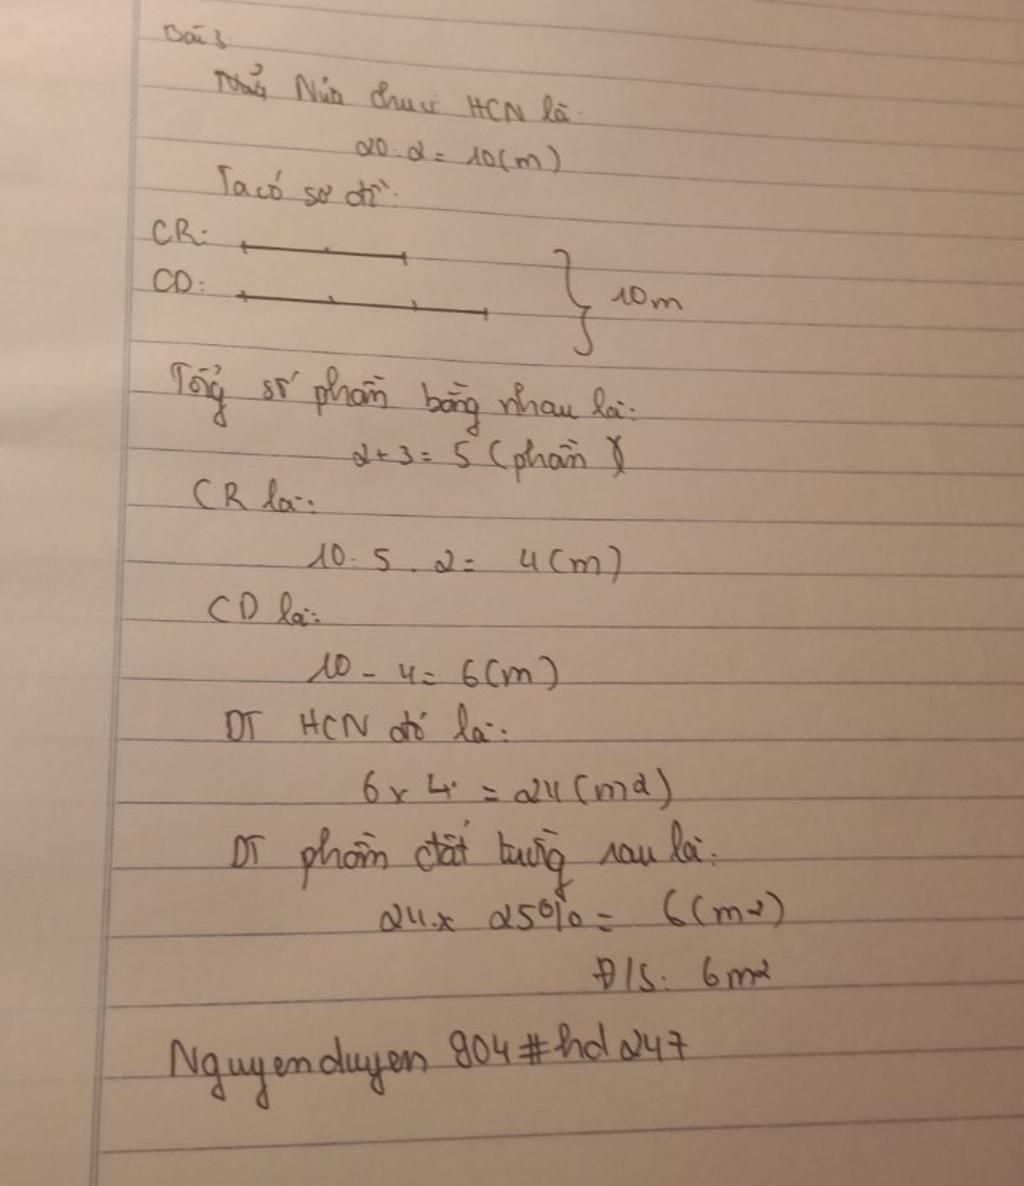 Bài 3
Nửa chu vi HCN là:
20:2=10(m)
Ta có sơ đồ:
CR:
CD:
10m
Tổng số phần bằng nhau là:
2+3=5(phần)
CR là:
10:5.2= 4(m)
CD là:
10-4=6(m)
DT HCN đó là:
6x4=24(m2)
DT phần đất trồng rau là:
24x25%=6(m2)
Đ/S: 6m2
Nguyenduyen904#hd247